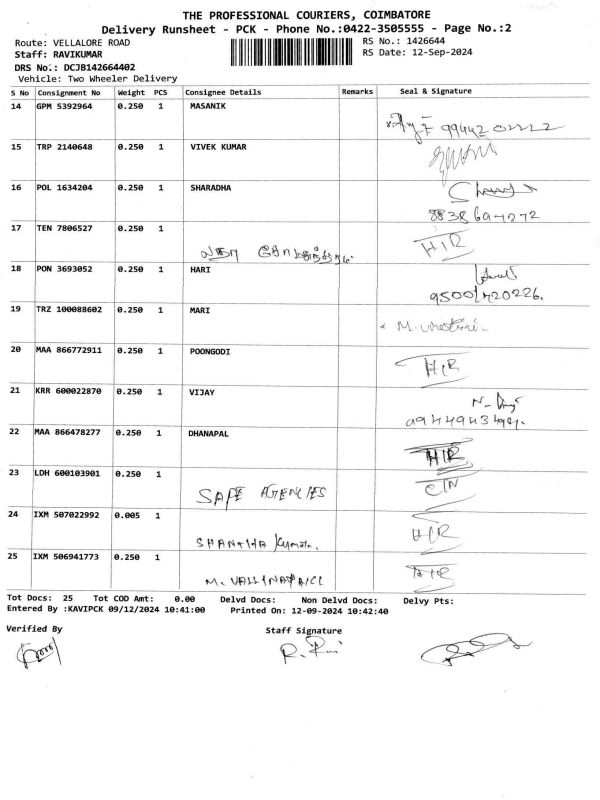 THE PROFESSIONAL COURIERS, COIMBATORE
Delivery Runsheet - PCK - Phone No.:0422-3505555 - Page No.:2
Route: VELLALORE ROAD RS No.: 1426644
Staff: RAVIKUMAR RS Date: 12-Sep-2024
DRS No.: DCJB142664402
Vehicle: Two Wheeler Delivery
S No Consignment No Weight PCS Consignee Details Remarks Seal & Signature
14 GPM 5392964 0.250 1 MASANIK
15 TRP 2140648 0.250 1 VIVEK KUMAR
16 POL 1634204 0.250 1 SHARADHA
17 TEN 7806527 0.250 1 HIR
18 PON 3693052 0.250 1 HARI
19 TRZ 100088602 0.250 1 MARI
20 MAA 866772911 0.250 1 POONGODI HIR
21 KRR 600022870 0.250 1 VIJAY
22 MAA 866478277 0.250 1 DHANAPAL HIR
23 LDH 600103901 0.250 1 SAFE AGENCIES
24 IXM 507022992 0.005 1 HIR
25 IXM 506941773 0.250 1 HIR
Tot Docs: 25 Tot COD Amt: 0.00 Delvd Docs: Non Delvd Docs: Delvy Pts:
Entered By :KAVIPCK 09/12/2024 10:41:00 Printed On: 12-09-2024 10:42:40
Verified By Staff Signature